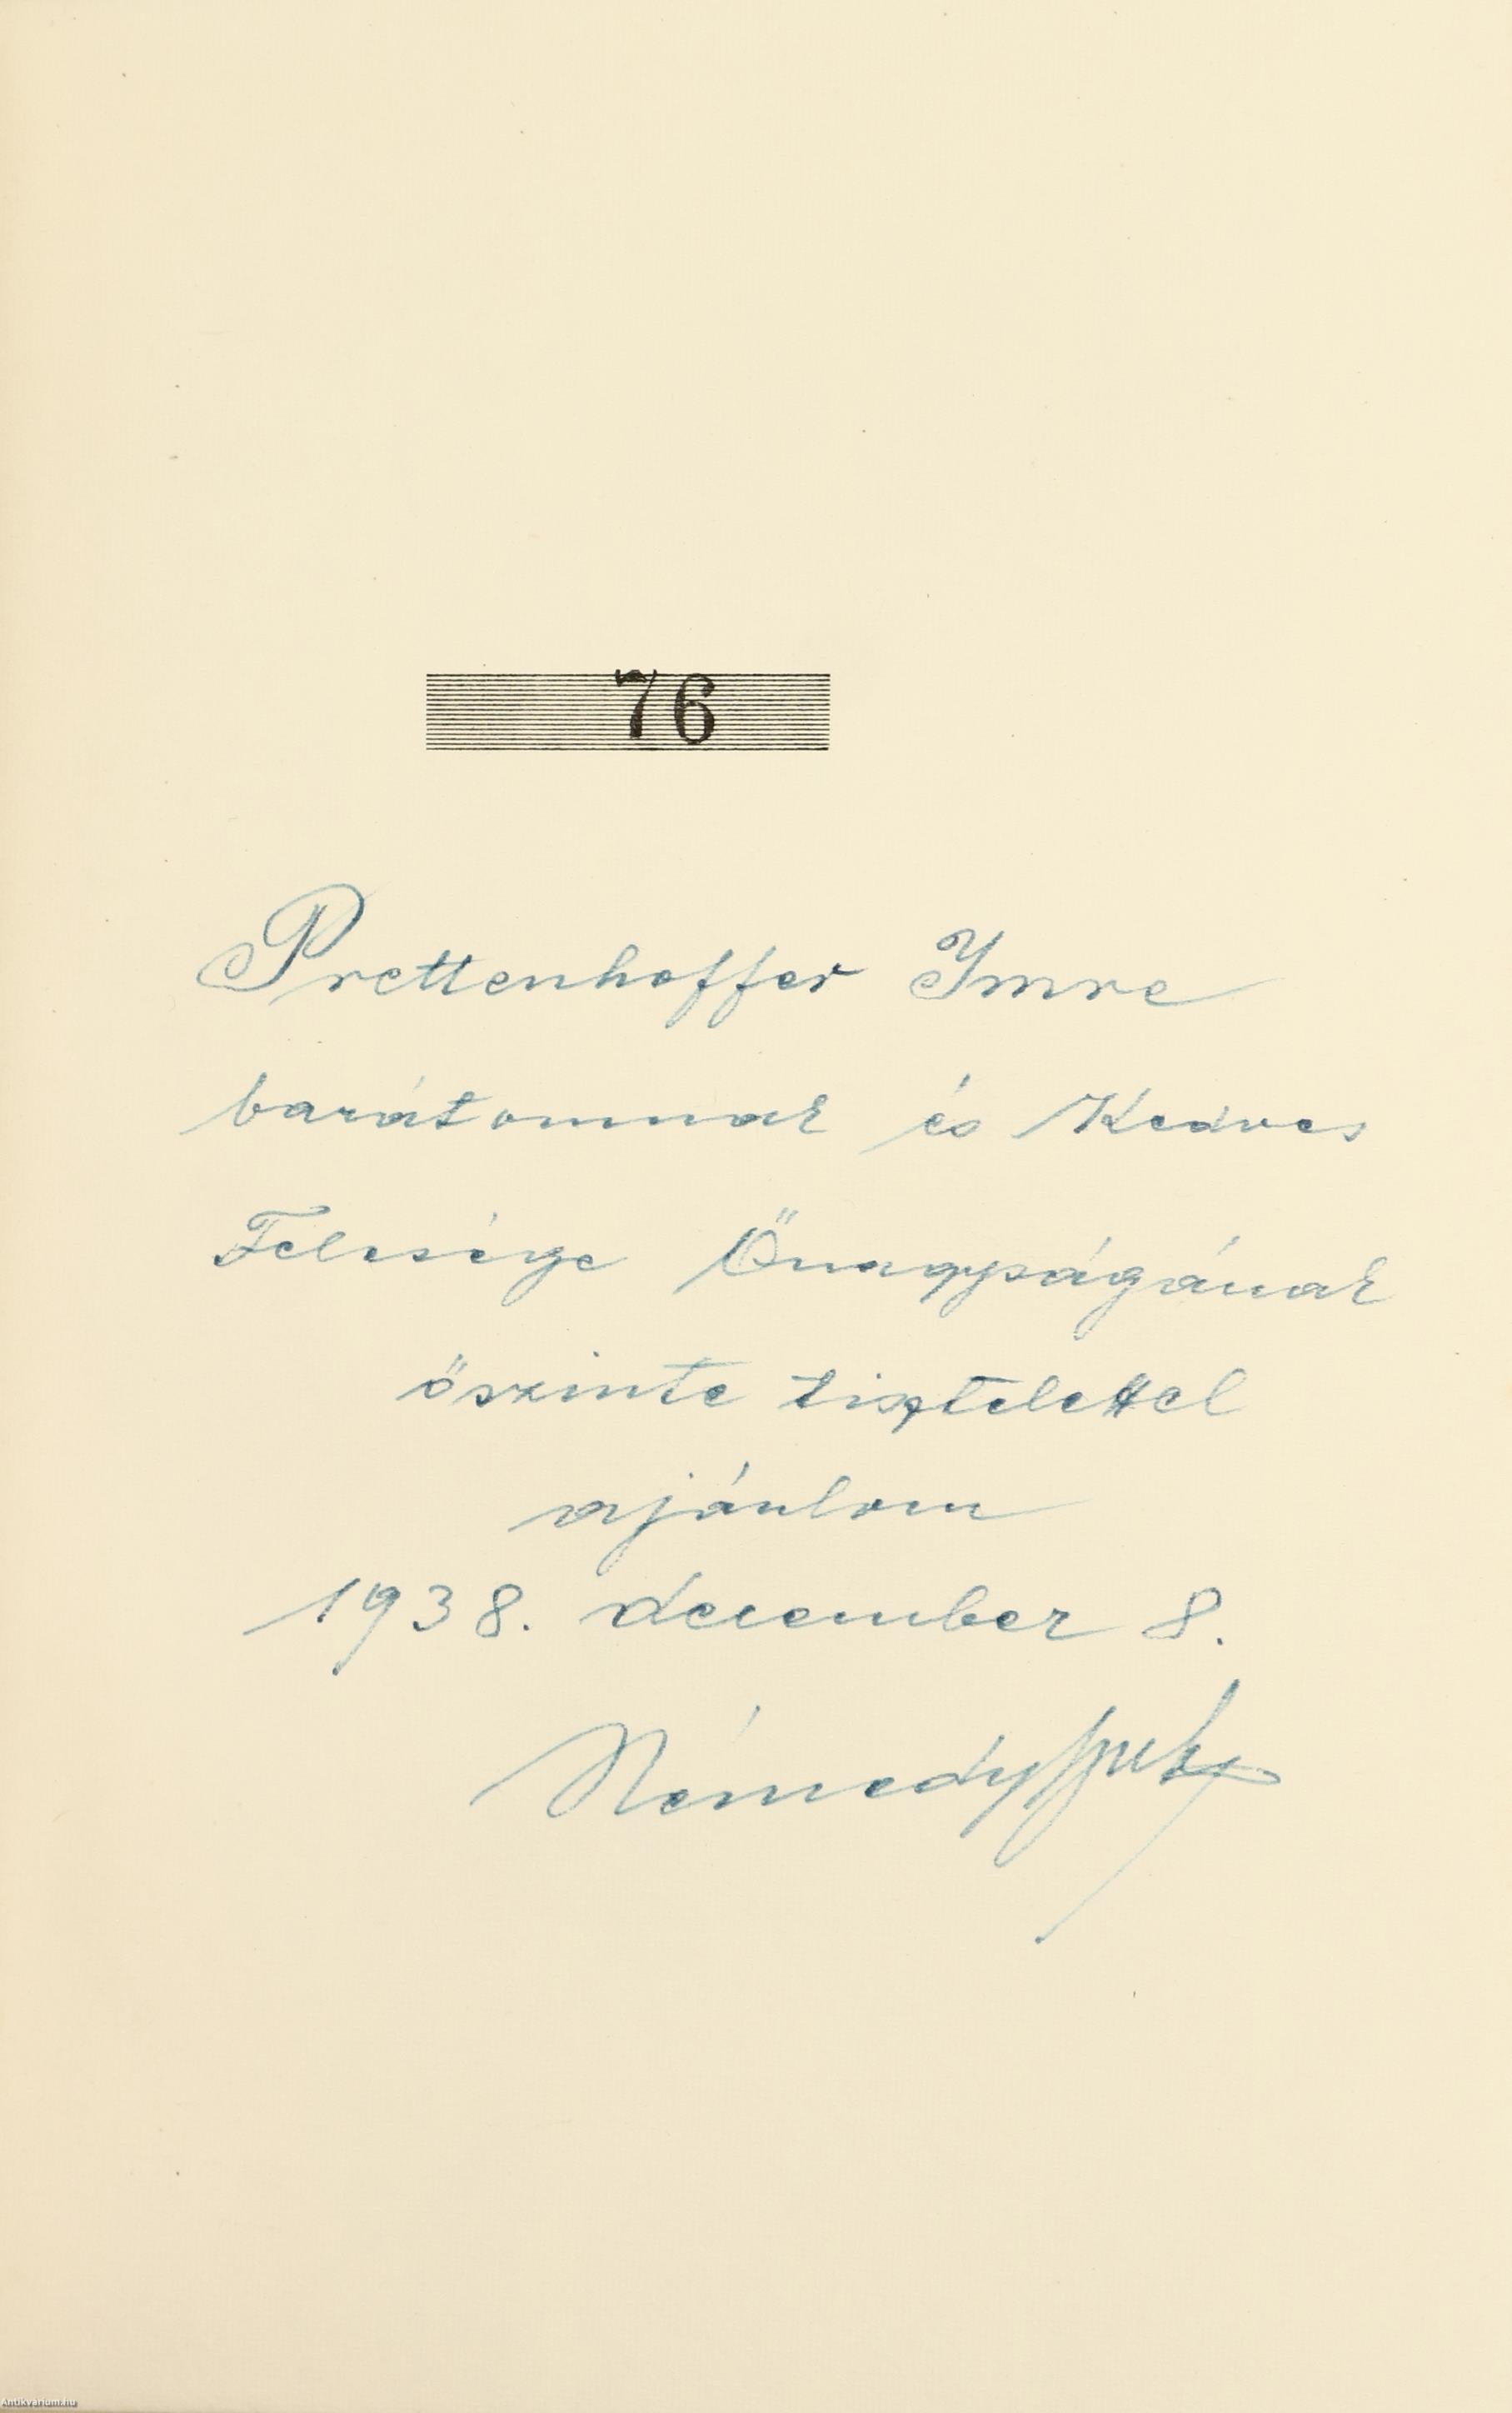 76
Prettenhoffer Imre
barátomnak és Kedves
Felesége Őnagyságának
őszinte tisztelettel
ajánlom
1938. december 8.
Némedy
Antikvarium.hu